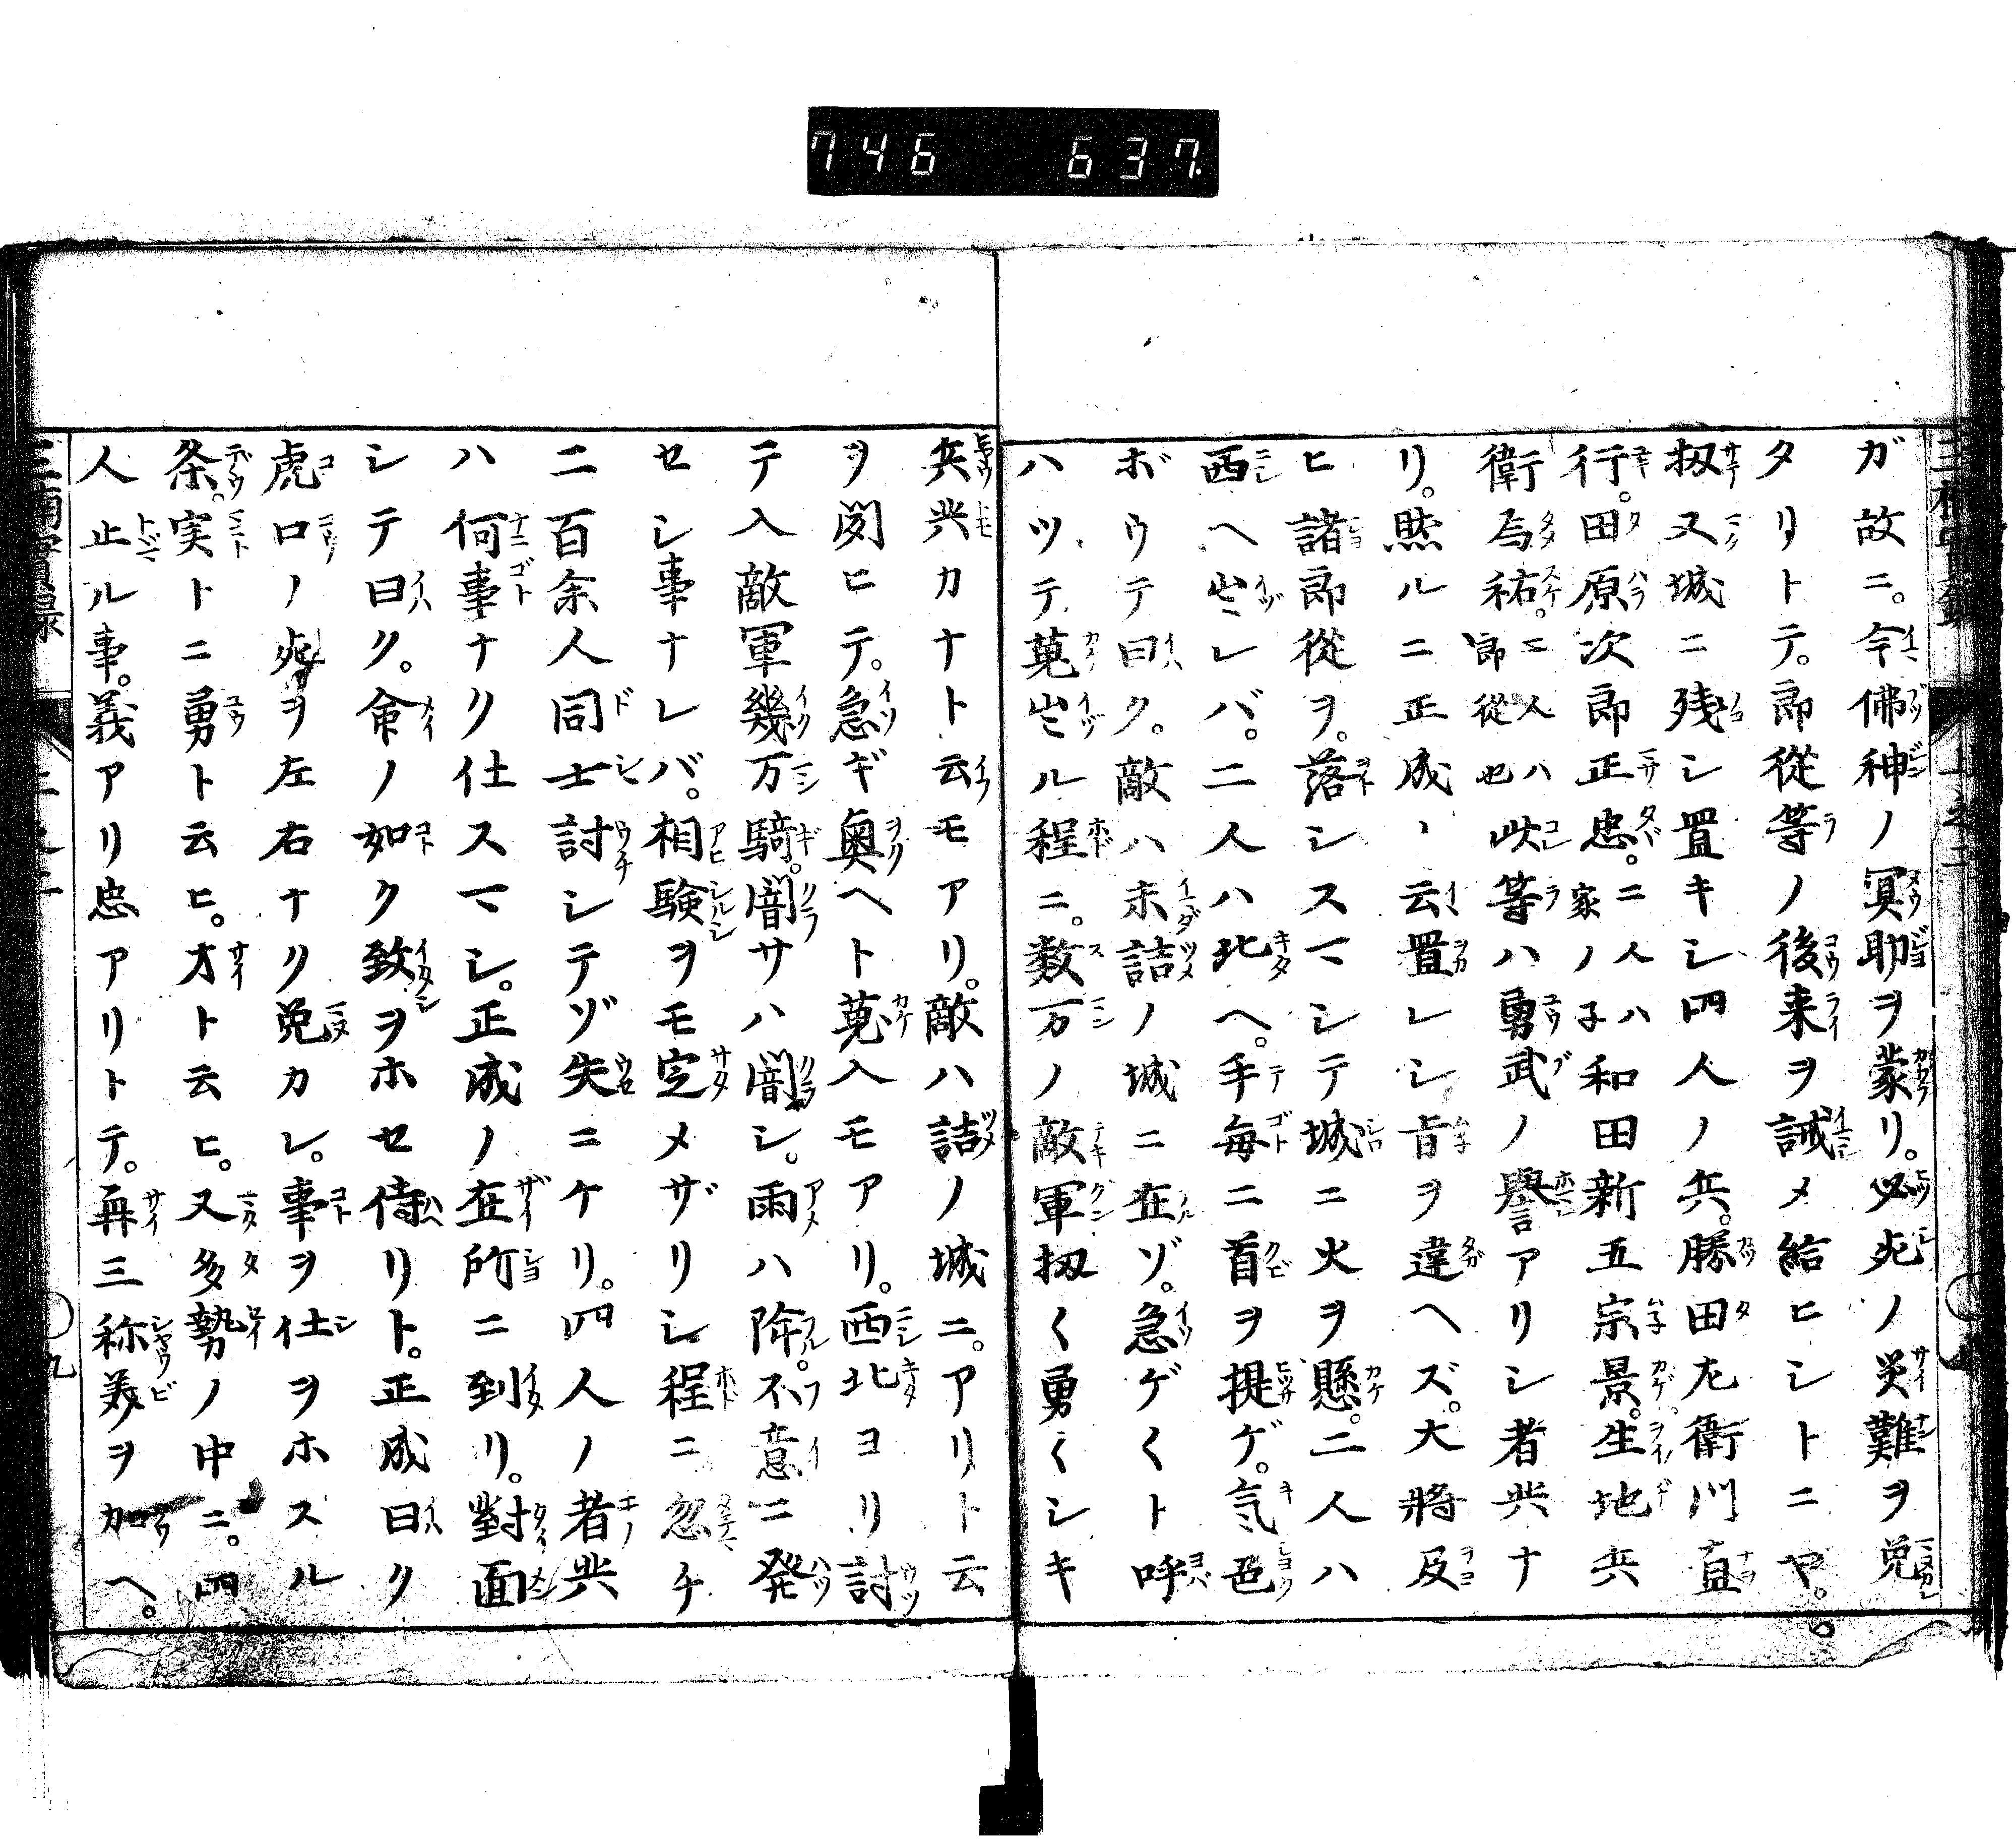 746 637
ガ故ニ。今佛神ノ冥助ヲ蒙リ。必死ノ災難ヲ免
タリトテ。郎從等ノ後来ヲ誡メ給ヒシトニヤ。
扨又城ニ残シ置キシ四人ノ兵。勝田左衛門直
行。田原次郎正忠。二人ハ家ノ子和田新五宗景。生地兵
衛為祐。二人ハ郎從也此等ハ勇武ノ譽アリシ者共ナ
リ。然ルニ正成丶云置レシ旨ヲ違ヘズ。大將及
ヒ諸郎從ヲ。落シスマシテ城ニ火ヲ懸。二人ハ
西ヘ出レバ。二人ハ北ヘ。手毎ニ首ヲ提ゲ。気色
ボウテ曰ク。敵ハ未詰ノ城ニ在ゾ。急ゲ〱ト呼
ハツテ。蒐出ル程ニ。数万ノ敵軍扨〱勇〱シキ
兵共カナト云モアリ。敵ハ詰ノ城ニ。アリト云
ヲ閧ヒテ。急ギ奥ヘト蒐入モアリ。西北ヨリ討
テ入敵軍幾万騎。闇サハ闇シ。雨ハ降。不意ニ発
セシ事ナレバ。相験ヲモ定メザリシ程ニ忽チ
二百余人同士討シテゾ失ニケリ。四人ノ者共
ハ何事ナク仕スマシ。正成ノ在所ニ到リ。對面
シテ曰ク。命ノ如ク致ヲホセ侍リト。正成曰ク
虎口ノ死ヲ左右ナク免カレ。事ヲ仕ヲホスル
条。実トニ勇ト云ヒ。才ト云ヒ。又多勢ノ中ニ。四
人止ル事。義アリ忠アリトテ。再三称美ヲ加ヘ。
九